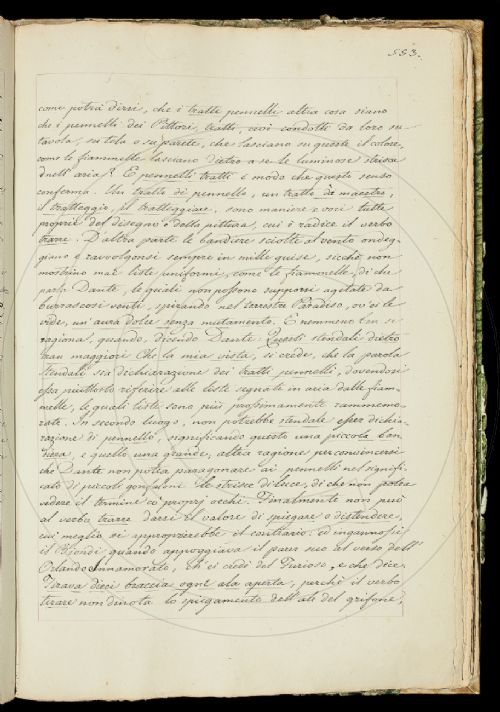 553.
come potrà dirsi, che i tratti pennelli altra cosa siano
che i pennelli dei Pittori, tratti, cioè condotti da loro su
tavola, su tela o su parete, che lasciano su queste il colore,
come le fiammelle lasciano dietro a se le luminose striscie
nell'aria? E pennelli tratti è modo che questo senso
conferma. Un tratto di pennello, un tratto da maestro,
il tratteggio, il tratteggiare, sono maniere e voci tutte
proprie del disegno e della pittura, cui è radice il verbo
trarre. D'altra parte le bandiere sciolte al vento ondeg-
giano e ravvolgonsi sempre in mille guise, sicchè non
mostrino mai liste uniformi, come le fiammelle, di che
parla Dante, le quali non possono supporsi agitate da
burrascosi venti, spirando nel terrestre Paradiso, ov'ei le
vide, un'aura dolce senza mutamento. E nemmeno ben si
ragiona, quando, dicendo Dante: Questi stendali dietro
eran maggiori Che la mia vista, si crede, che la parola
stendali sia dichiarazione dei tratti pennelli, dovendosi
essa piuttosto riferire alle liste segnate in aria dalle fiam-
melle, le quali liste sono più prossimamente rammemo-
rate. In secondo luogo, non potrebbe stendale esser dichia-
razione di pennello, significando questo una piccola ban-
diera, e quello una grande, altra ragione per convincersi
che Dante non potea paragonare ai pennelli nel signifi-
cato di piccoli gonfaloni le striscie di luce, di che non potea
vedere il termine co' proprj occhi. Finalmente non può
al verbo trarre darsi il valore di spiegare o distendere,
cui meglio si approprierebbe il contrario: ed ingannossi
il Biondi quando appoggiava il parer suo al verso dell'
Orlando Innamorato, ch'ei credè del Furioso, e che dice,
Tirava dieci braccia ogni ala aperta, perchè il verbo
tirare non dinota lo spiegamento dell'ali del grifone,